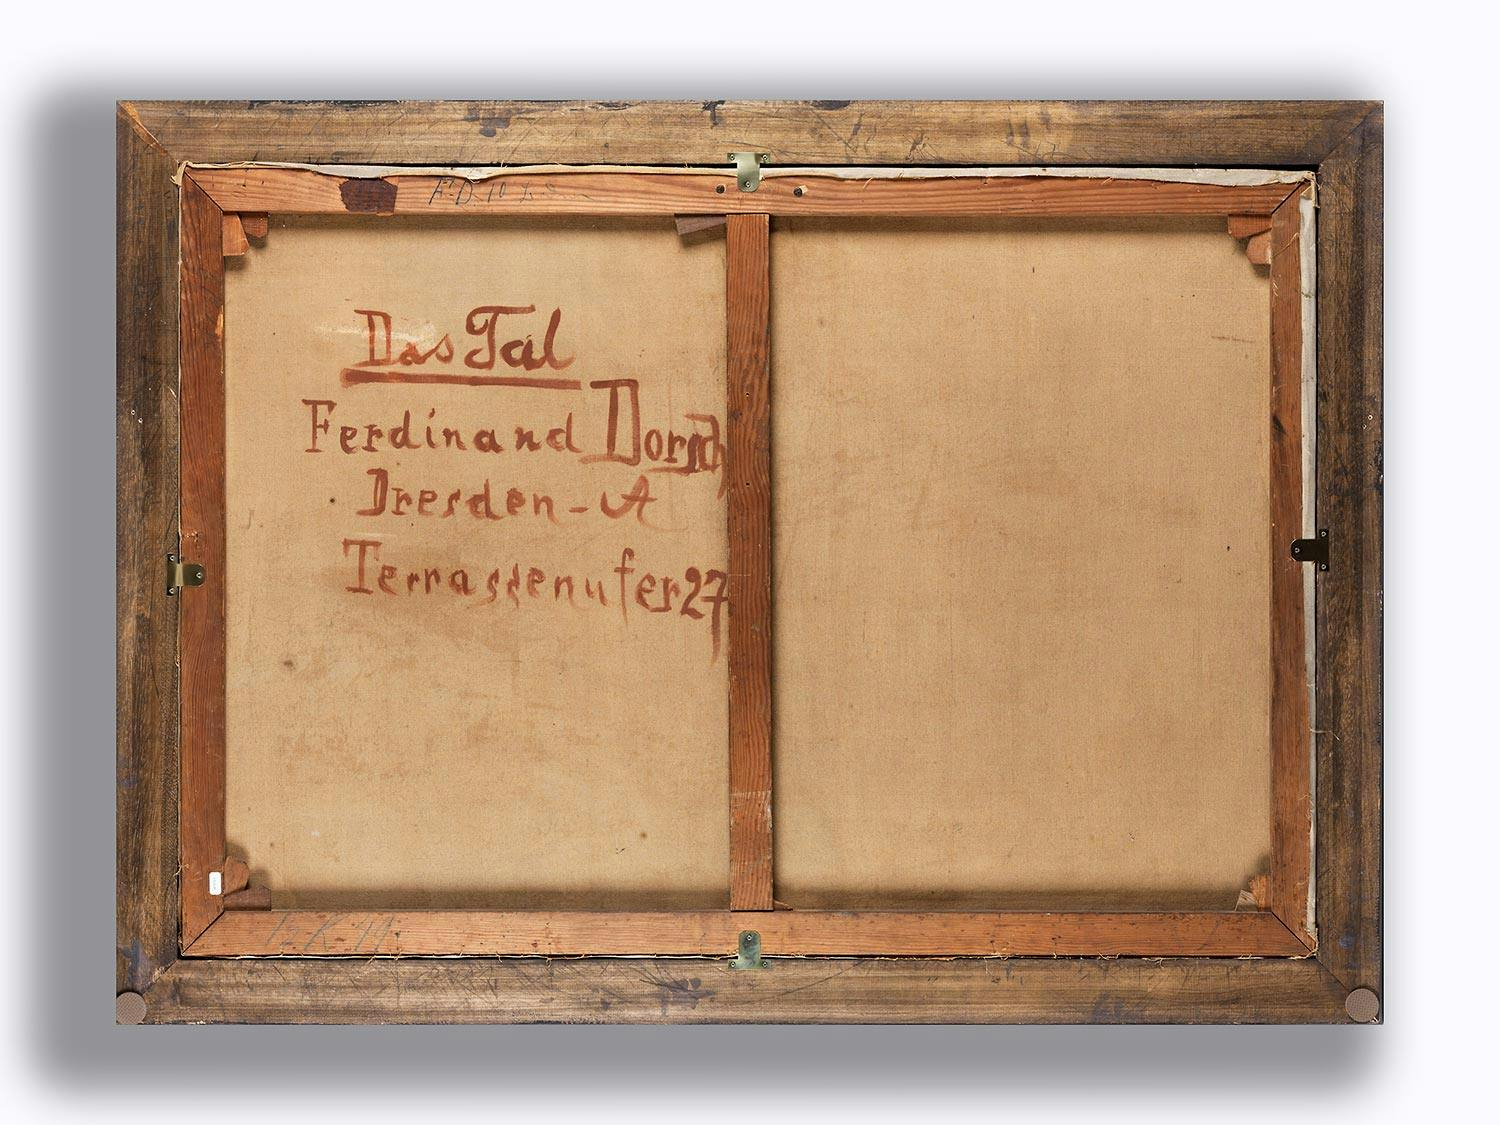 Das Tal
Ferdinand Dorsch
Dresden-A
Terrassenufer 27